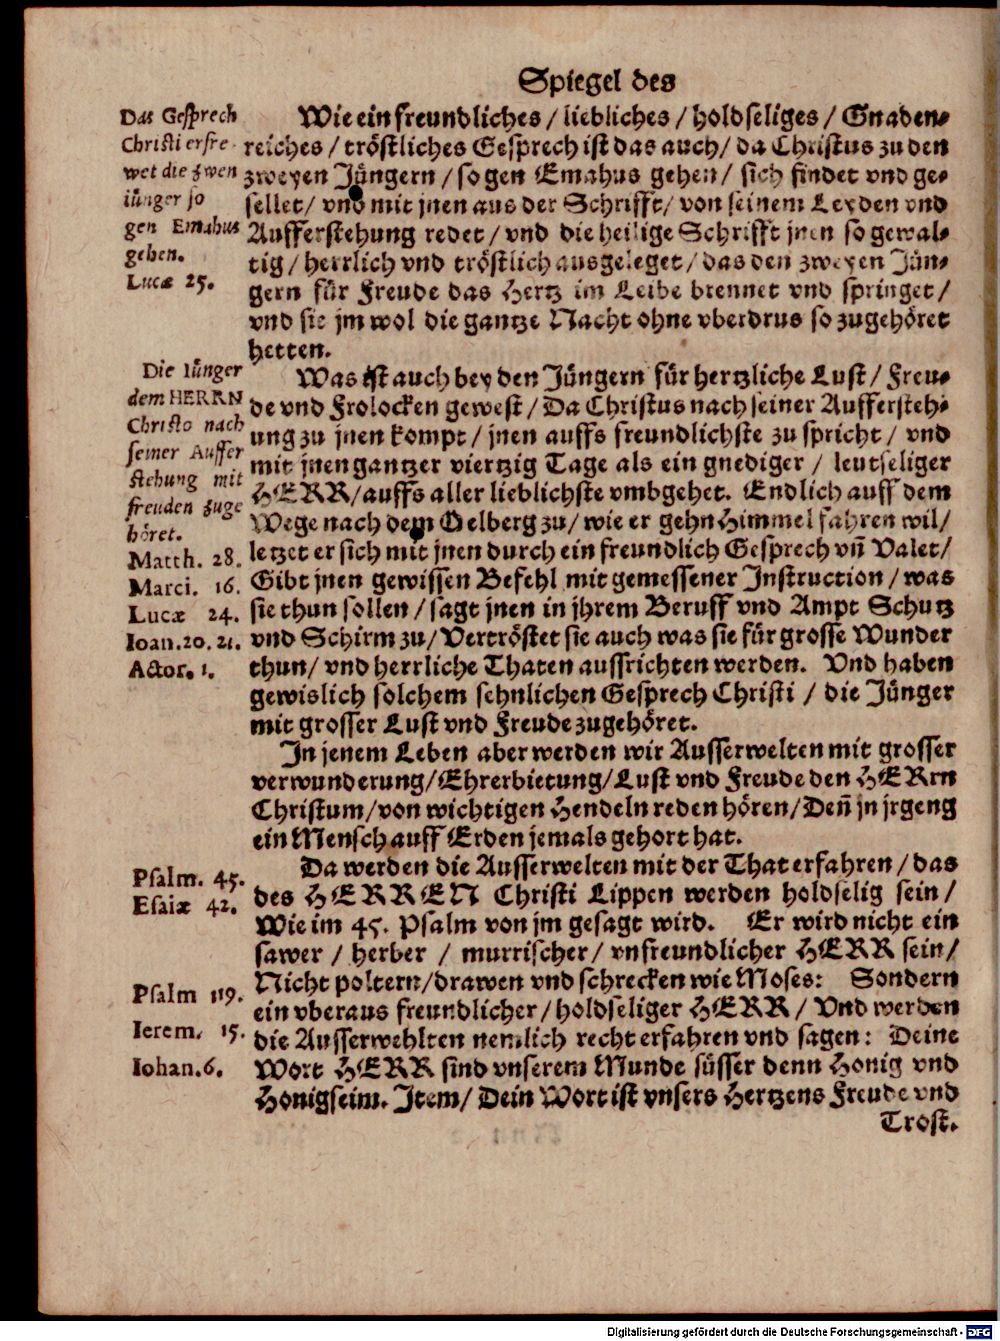 Spiegel des
Das Gesprech
Christi erfre-
wet die zwen
iünger so
gen Emahus
gehen.
Lucæ 25.
Wie ein freundliches / liebliches / holdseliges / Gnaden-
reiches / tröstliches Gesprech ist das auch / da Christus zu den
zweyen Jüngern / so gen Emahus gehen / sich findet vnd ge-
sellet / vnd mit jnen aus der Schrifft / von seinem Leyden vnd
Aufferstehung redet / vnd die heilige Schrifft jnen so gewal-
tig / herrlich vnd tröstlich ausgeleget / das den zweyen Jün-
gern für Freude das Hertz im Leibe brennet vnd springet /
vnd sie jm wol die gantze Nacht ohne vberdrus so zugehöret
hetten.
Die Iünger
dem HERRN
Christo nach
seiner Auffer
stehung mit
freuden zuge
höret.
Matth. 28.
Marci. 16.
Lucæ 24.
Ioan. 20. 21.
Actor. 1.
Was ist auch bey den Jüngern für hertzliche Lust / Freu-
de vnd Frolocken gewest / Da Christus nach seiner Auffersteh-
ung zu jnen kompt / jnen auffs freundlichste zu spricht / vnd
mit jnen gantzer viertzig Tage als ein gnediger / leutseliger
HERR / auffs aller lieblichste vmbgehet. Endlich auff dem
Wege nach dem Oelberg zu / wie er gehn Himmel fahren wil /
letzet er sich mit jnen durch ein freundlich Gesprech vn̄ Valet /
Gibt jnen gewissen Befehl mit gemessener Instruction / was
sie thun sollen / sagt jnen in jhrem Beruff vnd Ampt Schutz
vnd Schirm zu / Vertröstet sie auch was sie für grosse Wunder
thun / vnd herrliche Thaten ausrichten werden. Vnd haben
gewislich solchem sehnlichen Gesprech Christi / die Jünger
mit grosser Lust vnd Freude zugehöret.
In jenem Leben aber werden wir Ausserwelten mit grosser
verwunderung / Ehrerbietung / Lust vnd Freude den HERrn
Christum / von wichtigen Hendeln reden hören / Den̄ jn jrgeng
ein Mensch auff Erden jemals gehort hat.
Psalm. 45.
Esaiæ 42.
Psalm 119.
Ierem. 15.
Iohan. 6.
Da werden die Ausserwelten mit der That erfahren / das
des HERREN Christi Lippen werden holdselig sein /
Wie im 45. Psalm von jm gesagt wird. Er wird nicht ein
sawer / herber / murrischer / vnfreundlicher HERR sein /
Nicht poltern / drawen vnd schrecken wie Moses: Sondern
ein vberaus freundlicher / holdseliger HERR / Vnd werden
die Ausserwehlten nemlich recht erfahren vnd sagen: Deine
Wort HERR sind vnserem Munde süsser denn Honig vnd
Honigseim. Item / Dein Wort ist vnsers Hertzens Freude vnd
Trost.
Digitalisierung gefördert durch die Deutsche Forschungsgemeinschaft - DFG